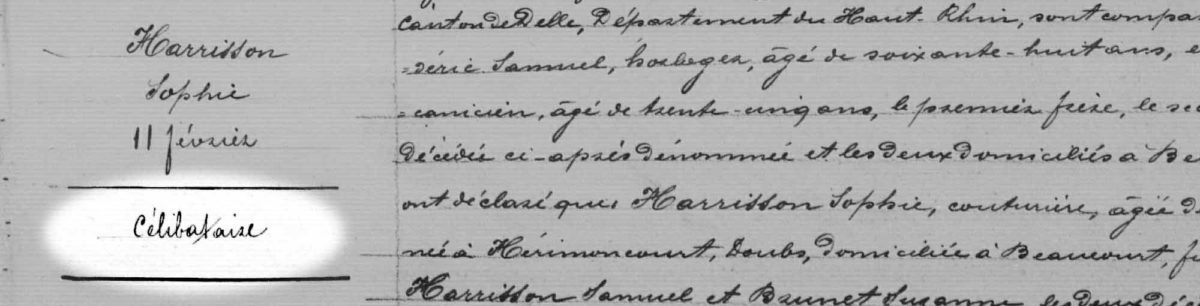 Harrisson
Sophie
11 février
Célibataire
Canton de Delle, Département du Haut-Rhin, sont compa
=déric Samuel, horloger, âgé de soixante-huit ans, e
=canicien, âgé de trente-cinq ans, le premier frère, le sec
décédée ci-après dénommée et les deux domiciliés à Be
ont déclaré que, Harrisson Sophie, couturière, âgée d
née à Hérimoncourt, Doubs, domiciliée à Beaucourt, f
Harrisson Samuel et Brunet Suzanne les deux dé